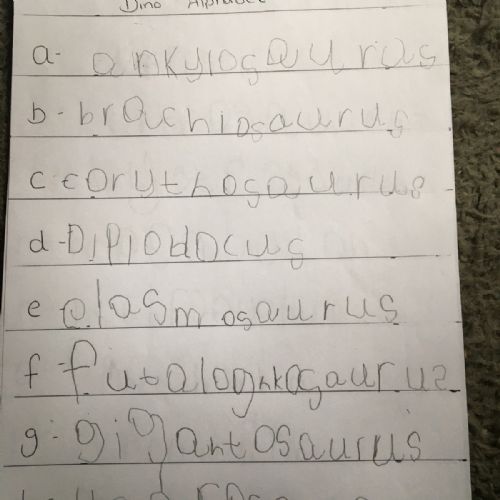 Dino Alphabet
a- ankylosauras
b- brachiosaurus
c corythosaurus
d- Diplodocus
e elasmosaurus
f- futalognkosaurus
g- gigantosaurus